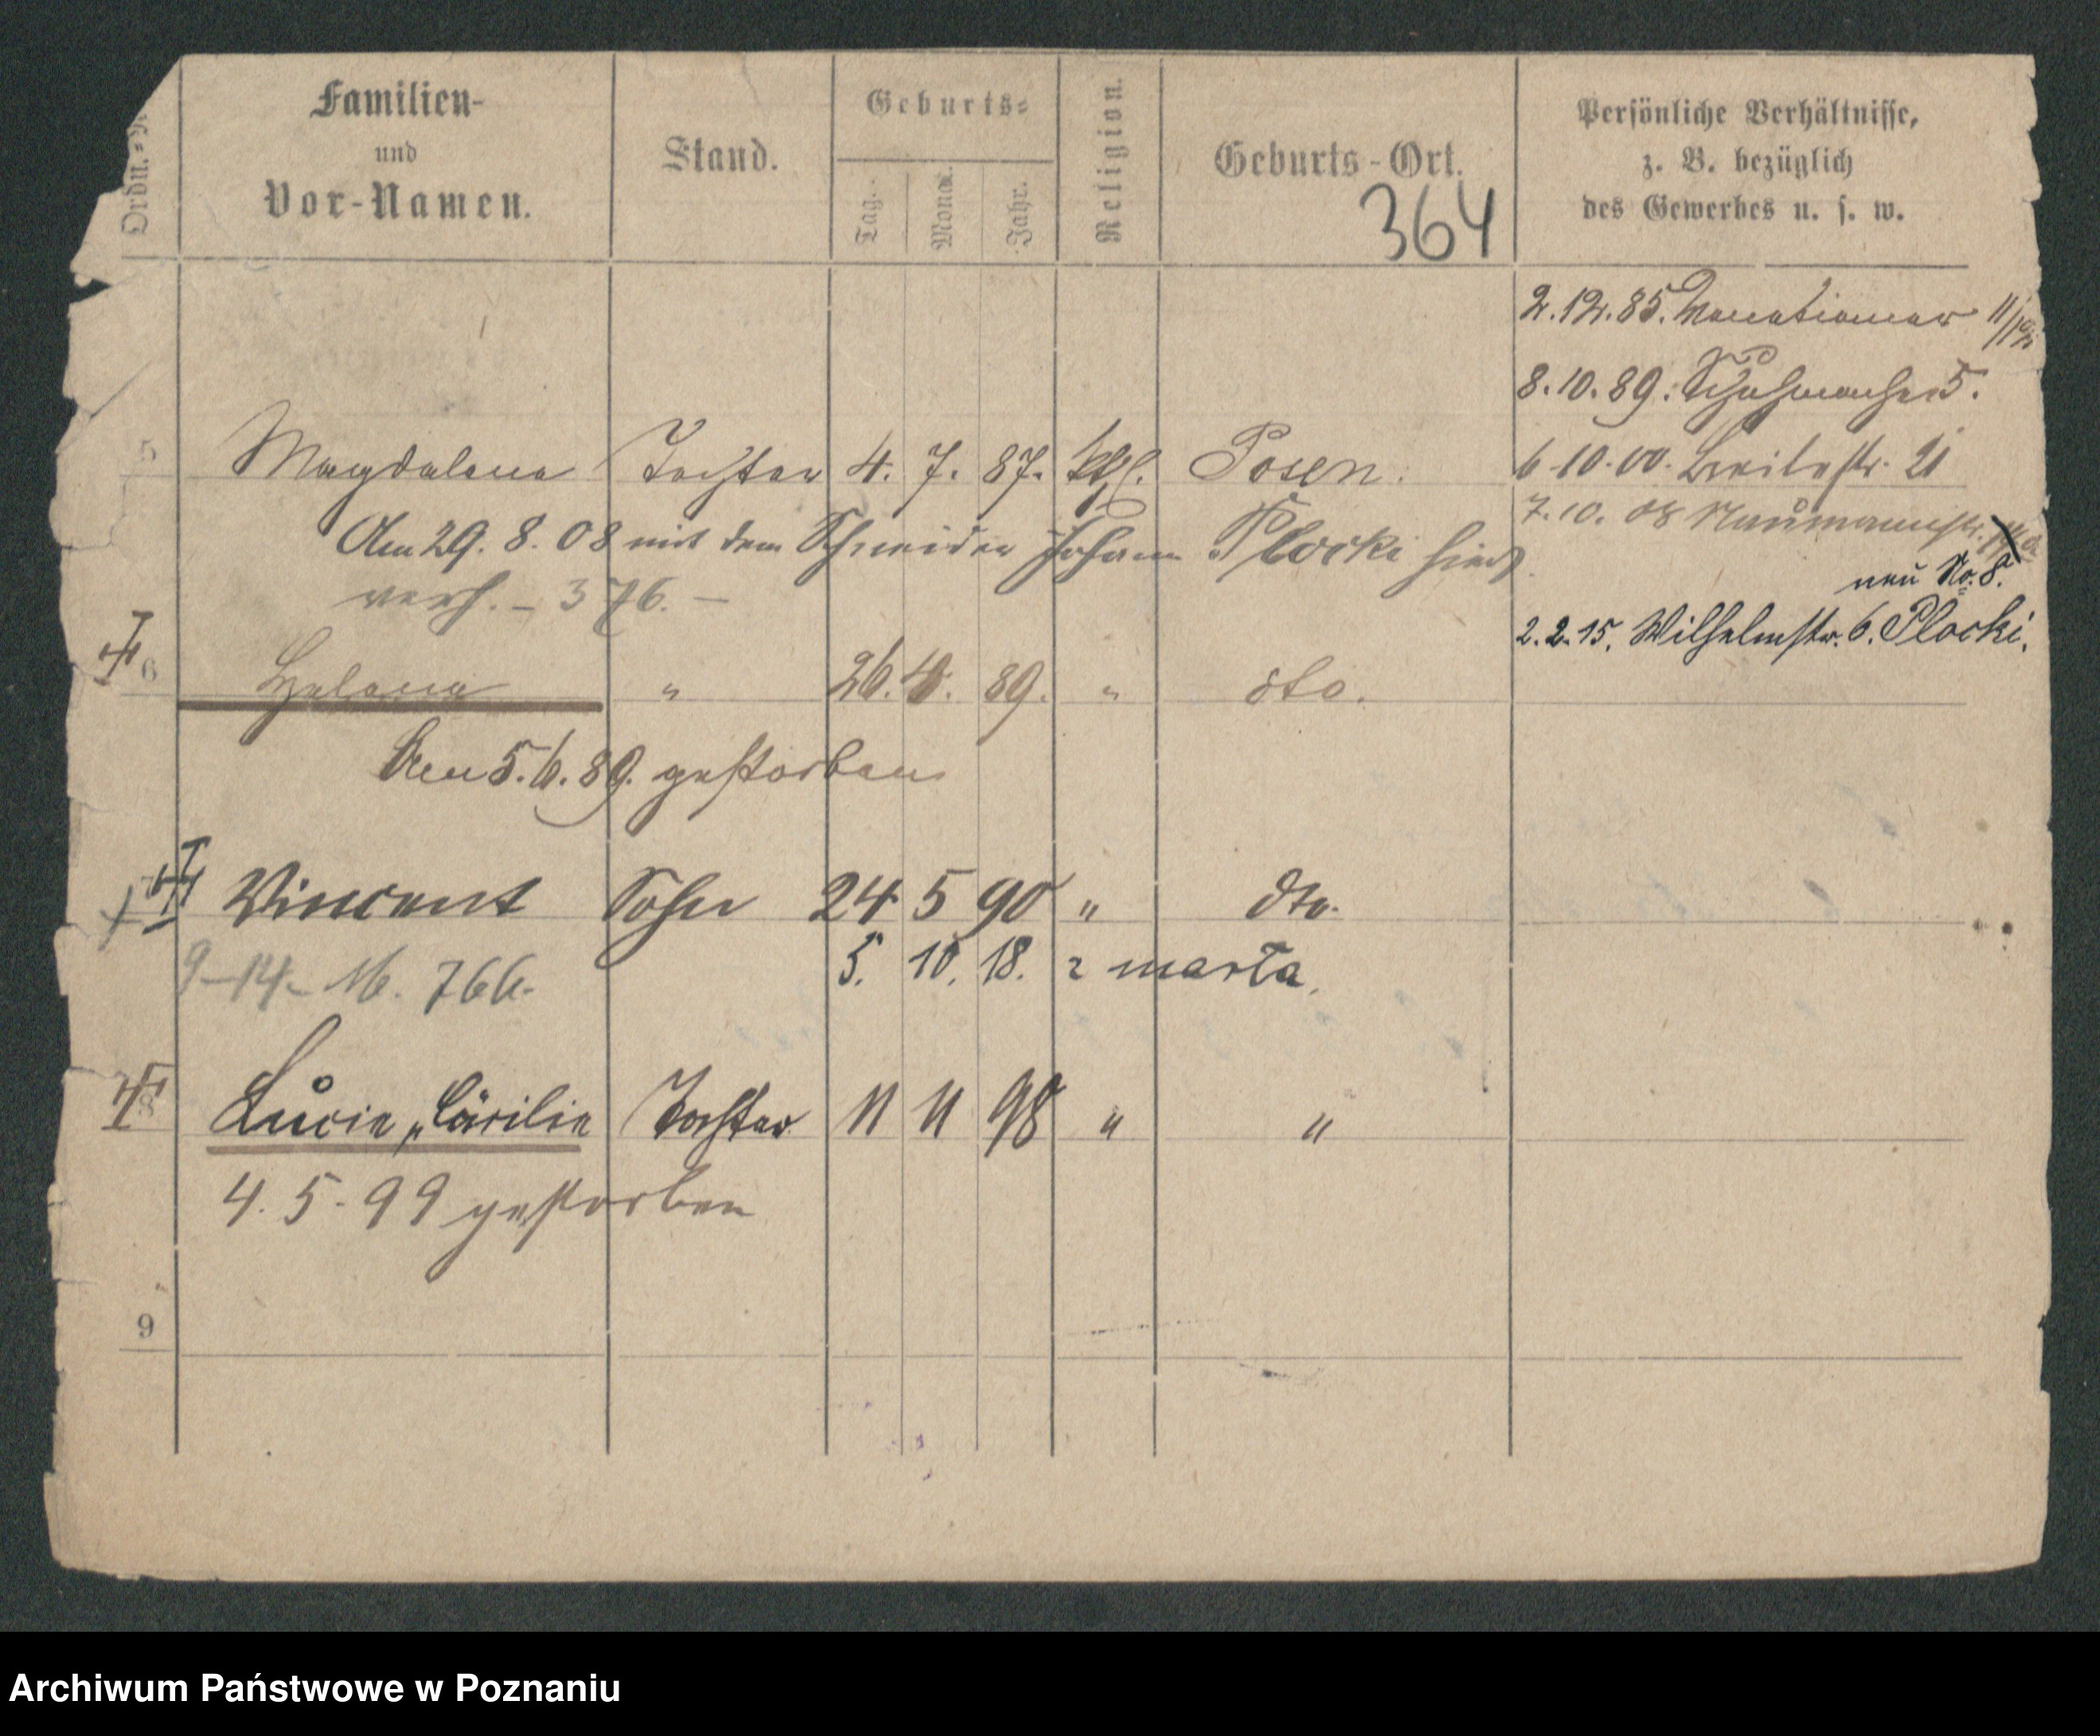 Ordn.=N
Familien-
und
Vor-Namen.
Stand.
Geburts=
Tag.
Monat.
Jahr.
Religion.
Geburts-Ort.
Persönliche Verhältnisse,
z. B. bezüglich
des Gewerbes u. s. w.
364
2.12.85.
8.10.89. 5.
5 Magdalena Tochter 4. 7. 87. kth. Posen. 6.10.00. Breitestr. 21
7.10.08 Naumannstr.
Am 29. 8. 08 mit dem Schneider Johann Plocki hier
neu No. 8.
verh. – 376. –
2.2.15. Wilhelmstr. 6. Plocki.
6 Helena " 26. 4. 89. " dto.
Am 5.6.89. gestorben
Vincent Sohn 24 5 90 " dto.
9-14- M. 766.
5. 10. 18. marta.
8 Lucie, Cäcilie Tochter 11 11 98 " "
4. 5. 99 gestorben
9
Archiwum Państwowe w Poznaniu